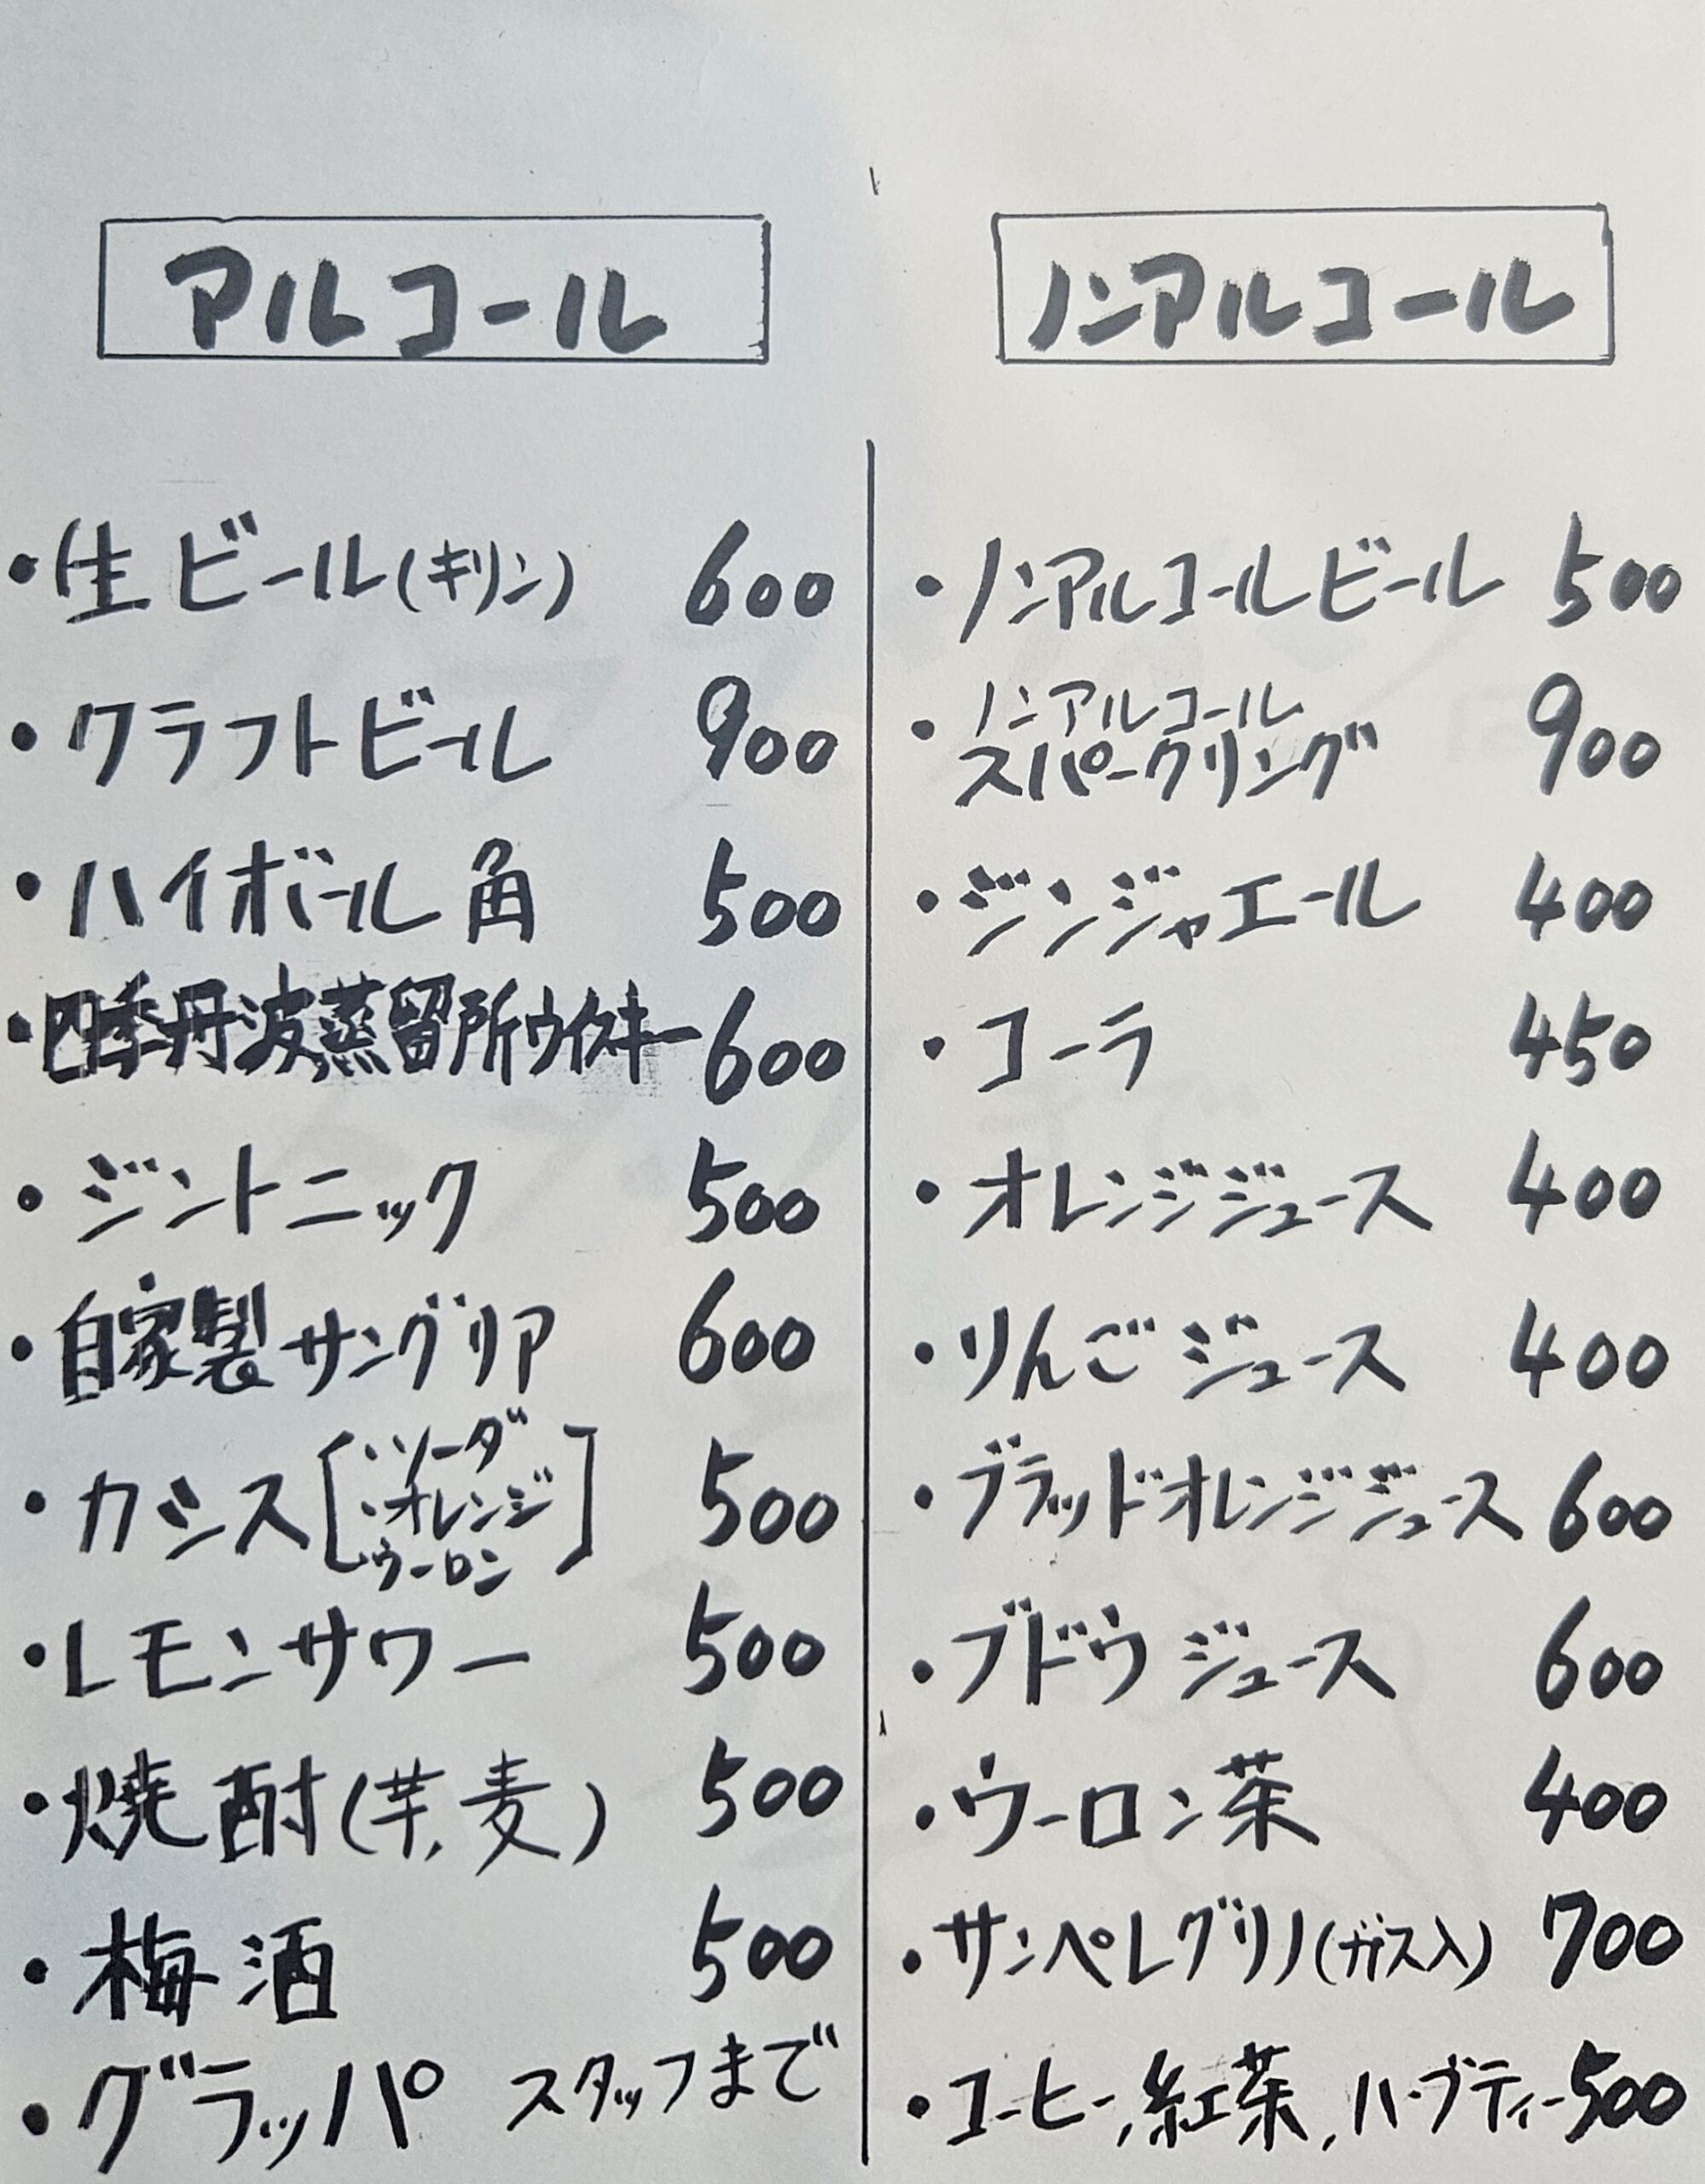 アルコール
・生ビール(キリン) 600
・クラフトビール 900
・ハイボール 角 500
・四季丹波蒸留所ウイスキー 600
・ジントニック 500
・自家製サングリア 600
・カシス[・ソーダ ・オレンジ ・ウーロン] 500
・レモンサワー 500
・焼酎(芋、麦) 500
・梅酒 500
・グラッパ スタッフまで
ノンアルコール
・ノンアルコールビール 500
・ノンアルコール
スパークリング 900
・ジンジャエール 400
・コーラ 450
・オレンジジュース 400
・りんごジュース 400
・ブラッドオレンジジュース 600
・ブドウジュース 600
・ウーロン茶 400
・サンペレグリノ(ガス入) 700
・コーヒー、紅茶、ハーブティー 500